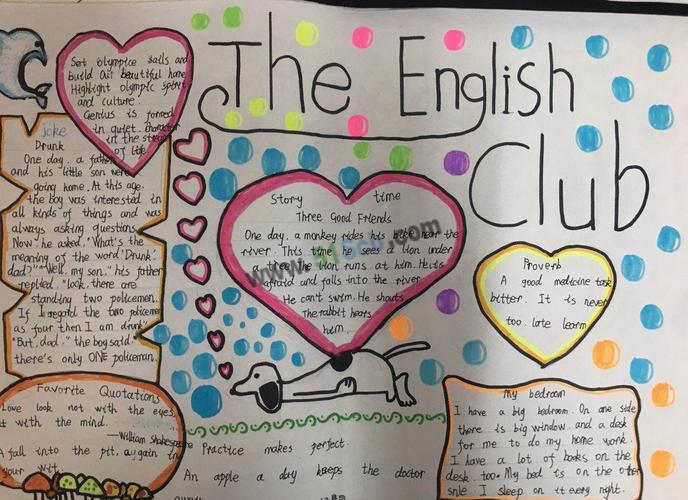 The English
Club
Set olympice sails and
build our beautiful home
Highlight olympic spirit
and culture.
Genius is formed
in quiet, character
in the stream
of life
joke
Drunk
One day, a father
and his little son were
going home. At this age.
the boy was interested in
all kinds of things and was
always asking questions.
Now he asked. "What's the
meaning of the word 'Drunk'
dad?" "Well, my son," his father
replied, "look, there are
standing two policemen.
If I regard the two policemen
as four then I am drunk"
"But, dad," the boy said
there's only ONE policeman.
Story time
Three Good Friends
One day, a monkey rides his bike near the
river. This time he sees a lion under
a tree. The lion runs at him. He is
afraid and falls into the river.
He can't swim. He shouts
The rabbit hears
him.
Proverb
A good medicine task
bitter. It is never
too late learn
Favorite Quotations
Love look not with the eyes,
t with the mind.
—William Shakespeare
A fall into the pit, a gain in
your wit.
Practice makes perfect.
An apple a day keeps the doctor
My bedroom
I have a big bedroom. On one side
there is big window. and a desk
for me to do my home work.
I have a lot of books on the
desk. too. My bed is on the other
side. I sleep on it every night.